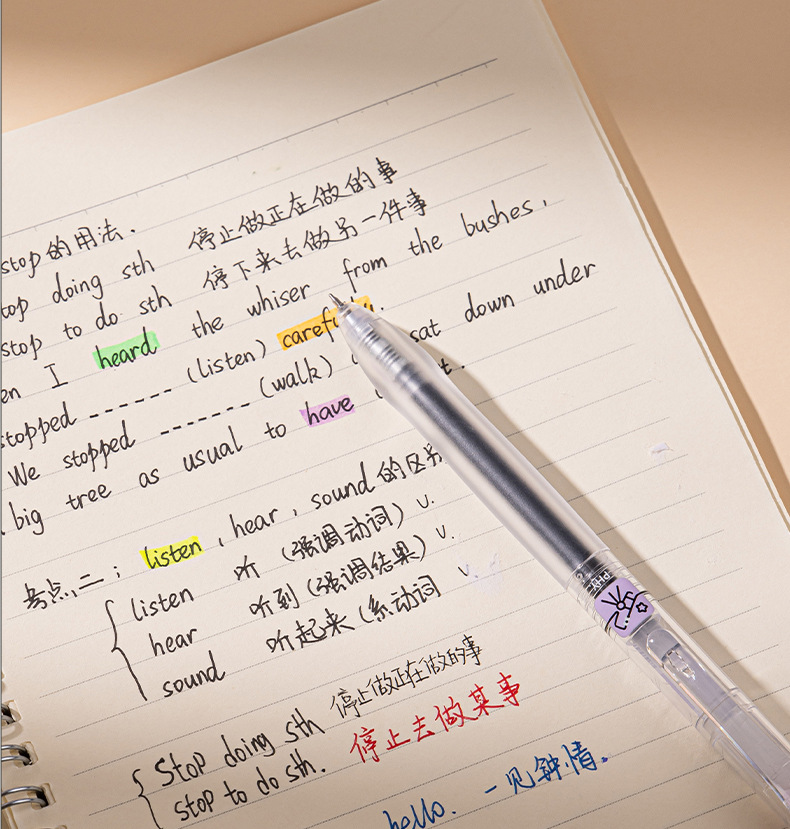 stop的用法.
top doing sth 停止做正在做的事
stop to do sth 停下来去做另一件事
en I heard the whiser from the bushes,
stopped ------ (listen)
We stopped ------- (walk) sat down under
big tree as usual to have
考点二: listen, hear, sound的区别
listen 听 (强调动词) v.
hear 听到 (强调结果) v.
sound 听起来 (系动词 v.
Stop doing sth 停止做正在做的事
stop to do sth. 停止去做某事
hello. 一见钟情。